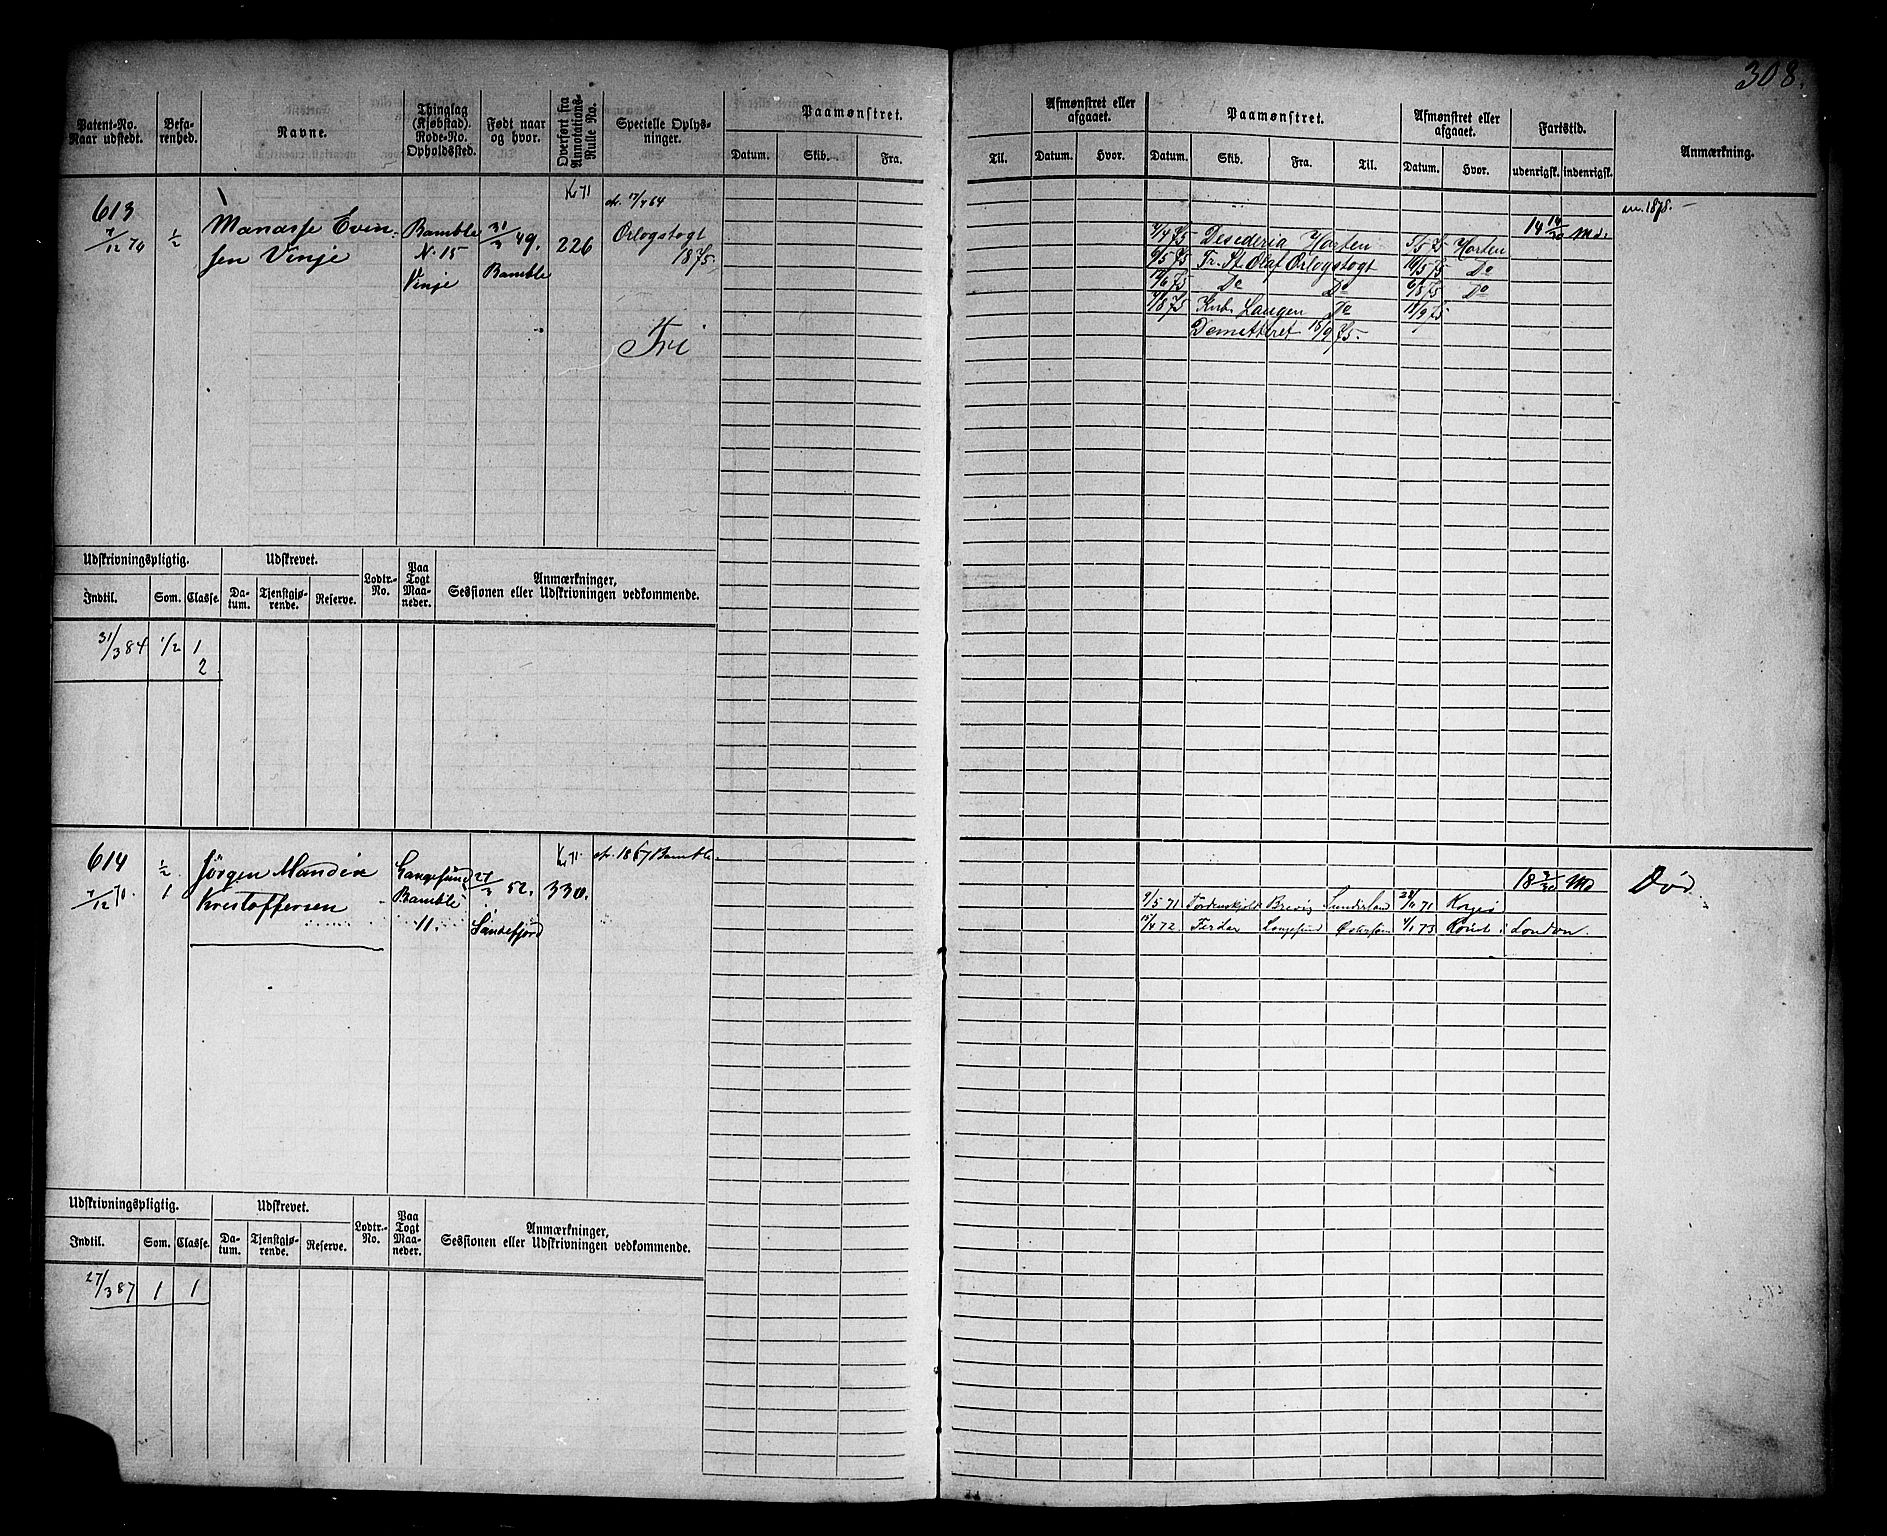 308.
Patent-No. Naar udstedt.
Befarenhed.
Navne.
Thinglag (Kjøbstad). Rode-No. Opholdssted.
Født naar og hvor.
Overført fra Annotations-Rulle No.
Specielle Oplysninger.
Paamønstret.
Datum. Skib. Fra.
Til.
Afmønstret eller afgaaet.
Datum. Hvor.
Paamønstret.
Datum. Skib. Fra. Til.
Afmønstret eller afgaaet.
Datum. Hvor.
Fartstid.
udenrigsk. indenrigsk.
Anmærkning.
613
7/12 70
1/2
Manasse Even-
sen Vinje
Bamble
N. 15
Vinje
31/3 49.
Bamble
K 71
226
Orlogstogt
1875.
Fri
14 14/30 Md.
9/4 75 Desederia Horten 5/5 75 Horten
6/5 75 Fr. St. Olaf Orlogstogt Do
Do Do Do
Langen Do 11/9 75
Demitteret 15/9 75.
Udskrivningspligtig.
Udskrevet.
Lodtr.-No.
Paa Togt Maaneder.
Anmærkninger,
Sessionen eller Udskrivningen vedkommende.
Indtil. Som. Classe. Datum. Tjenstgjørende. Reserve.
31/3 84 1/2 1
2
614
7/12 70.
1/2
1
Jørgen Mandix
Krestoffersen
Langesund
Bamble
11.
27/3 52.
Sandefjord
K 71.
330.
1867 Bamble
18 Md
Død
9/5 71 Tordenskjold Brevig Sunderland 71
15/4 72. Langesund 4/1 73 London.
Udskrivningspligtig.
Udskrevet.
Lodtr.-No.
Paa Togt Maaneder.
Anmærkninger,
Sessionen eller Udskrivningen vedkommende.
Indtil. Som. Classe. Datum. Tjenstgjørende. Reserve.
27/3 87 1 1